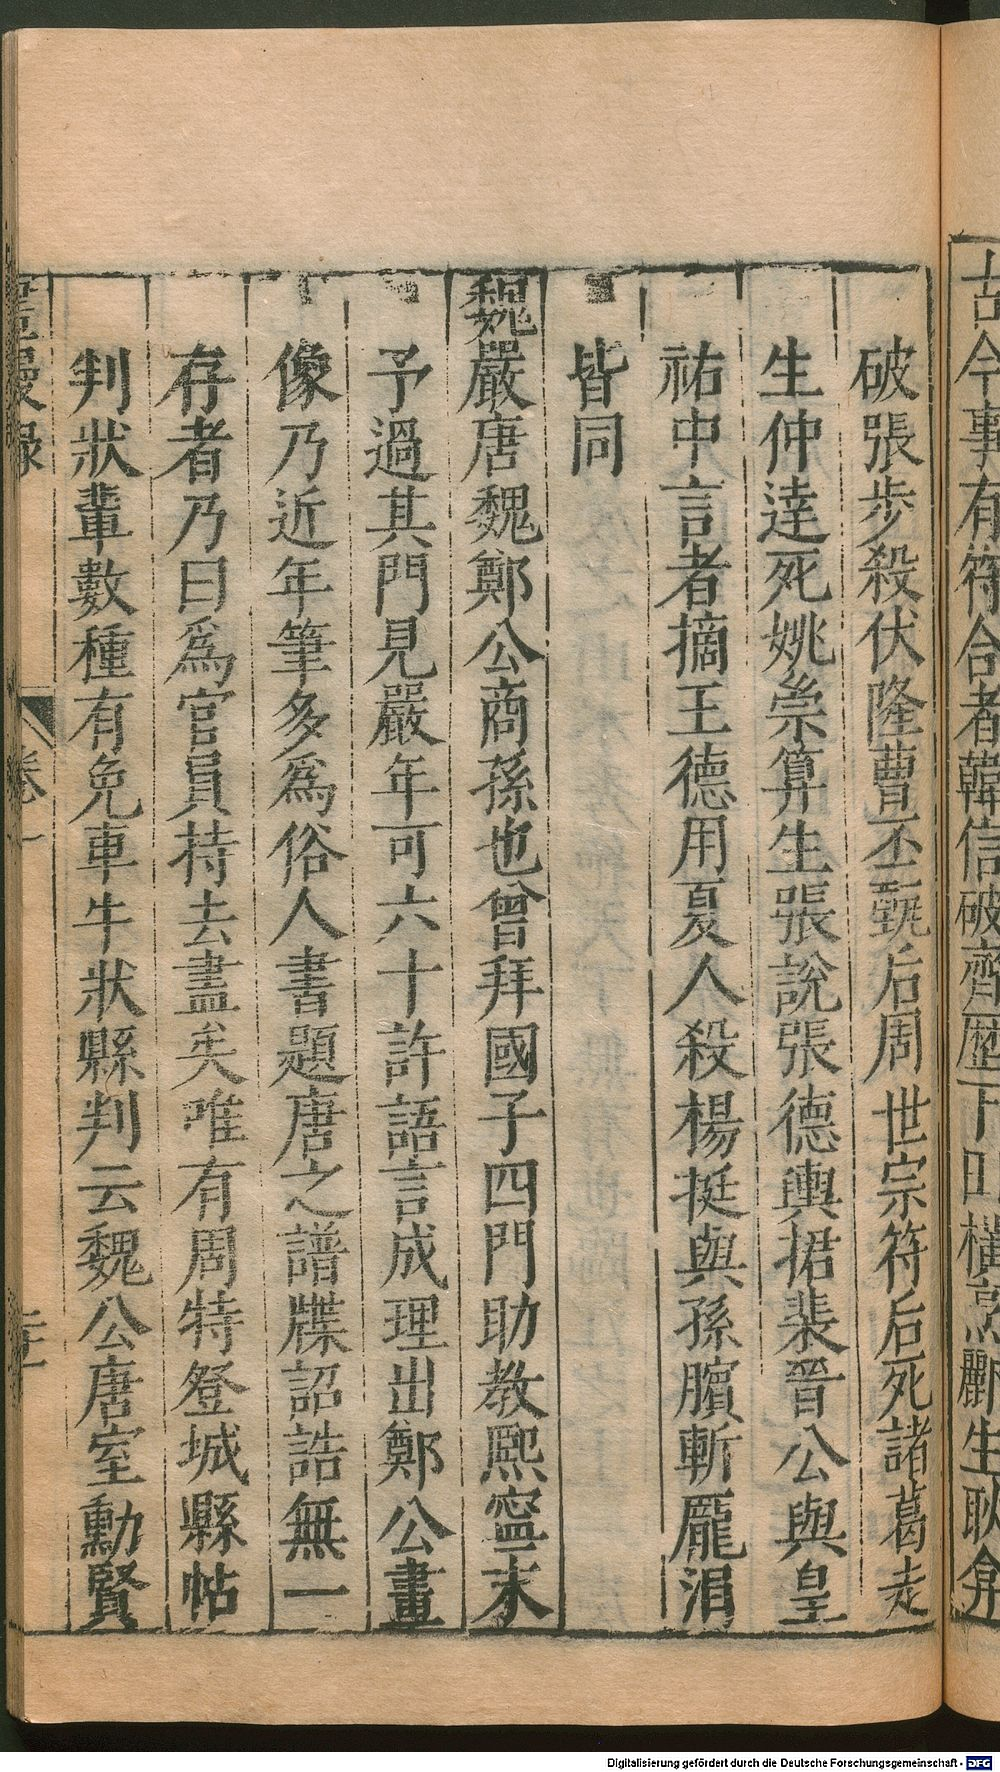 古今事有符合者韓信破齊歷下田橫烹酈生耿弇
破張步殺伏隆曹丕甄后周世宗符后死諸葛走
生仲達死姚崇算生張說張德輿据裴晉公與皇
祐中言者摘王德用夏人殺楊挺與孫臏斬龐涓
皆同
魏嚴唐魏鄭公商孫也曾拜國子四門助教熙寧末
予過其門見嚴年可六十許語言成理出鄭公畫
像乃近年筆多為俗人書題唐之譜牒詔誥無一
存者乃曰為官員持去盡矣唯有周特登城縣帖
判狀輩數種有免車牛狀縣判云魏公唐室勳賢
墁錄
卷一
Digitalisierung gefördert durch die Deutsche Forschungsgemeinschaft - DFG